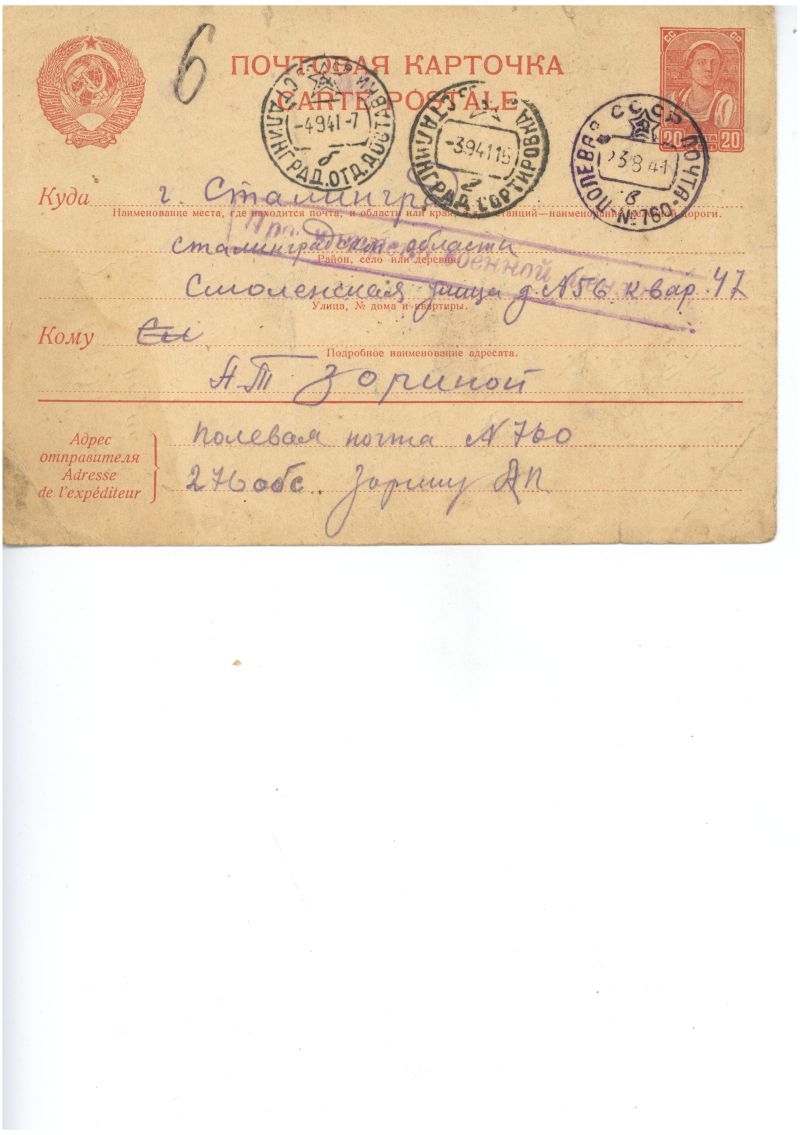 6
ПОЧТОВАЯ КАРТОЧКА
CARTE POSTALE
СССР
20 20
СССР СТАЛИНГРАД. ОТД. ДОСТАВКИ
-4941-7
б
СТАЛИНГРАД СОРТИРОВКА
-394115
г
СССР ПОЛЕВАЯ ПОЧТА № 760
23841
в
Куда г. Сталинград
Наименование места, где находится почта, и области или края, а для станций—наименование железной дороги.
сталинградской области
Район, село или деревня.
Смоленская улица д. N56 квар. 47
Улица, № дома и квартиры.
Кому
Подробное наименование адресата.
АТ Зориной
Адрес отправителя
Adresse de l'expéditeur
полевая почта N 760
276 обс Зорину АП